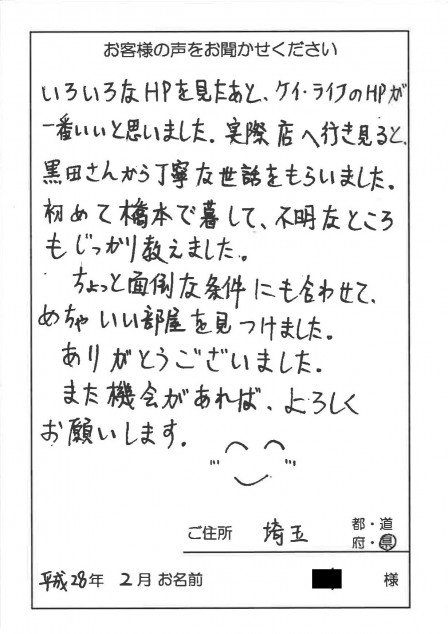 お客様の声をお聞かせください
いろいろなHPを見たあと、ケイ・ライフのHPが
一番いいと思いました。実際店へ行き見ると、
黒田さんから丁寧な世話をもらいました。
初めて橋本で暮して、不明なところ
もじっかり教えました。
ちょっと面倒な条件にも合わせて、
めちゃいい部屋を見つけました。
ありがとうございました.
また機会があれば、よろしく
お願いします。
ご住所 埼玉 都・道
府・県
平成28年 2月 お名前 様